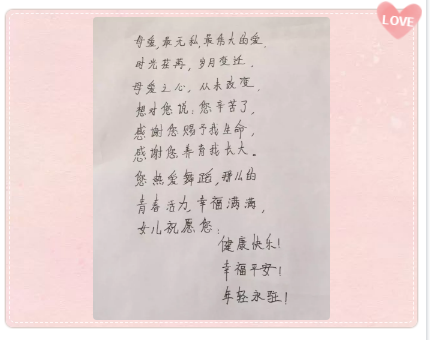 LOVE
母爱,最无私,最伟大的爱.
时光荏苒,岁月变迁.
母爱之心,从未改变.
想对您说:您辛苦了,
感谢您赐予我生命,
感谢您养育我长大。
您热爱舞蹈,
青春活力,幸福满满,
女儿祝愿您:
健康快乐!
幸福平安!
年轻永驻!